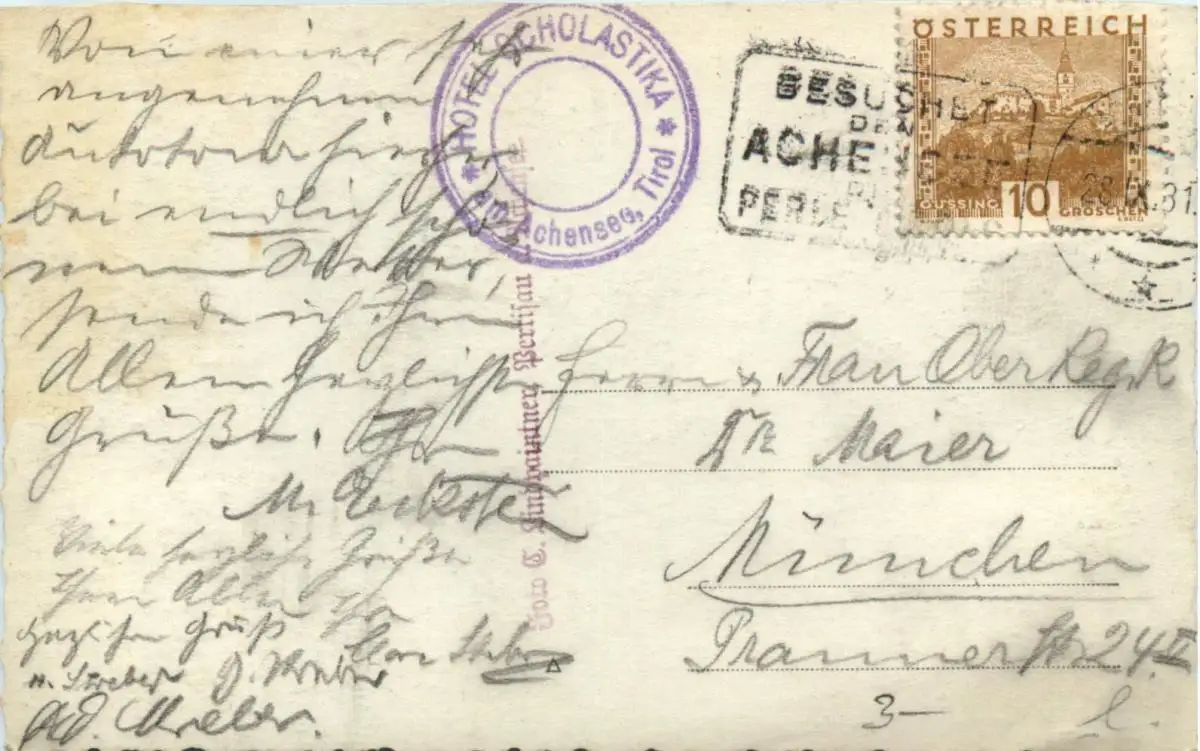 Von einer sehr
angenehmen
Autotour hierher
bei endlich schö-
nem Wetter,
sende ich Ihnen
Allen herzlichste
Grüße. Ihr
Viele herzliche Grüße
Ihnen Allen Ihr
Herzlichen Gruß
HOTEL SCHOLASTIKA
am Achensee, Tirol
BESUCHET
DEN
ACHENSEE
PERLE
ÖSTERREICH
GÜSSING 10 GROSCHEN
28.IX.31
Pertisau
Herrn & Frau Ober Reg. R
Dr. Maier
München
Prannerstr 24 II
3–